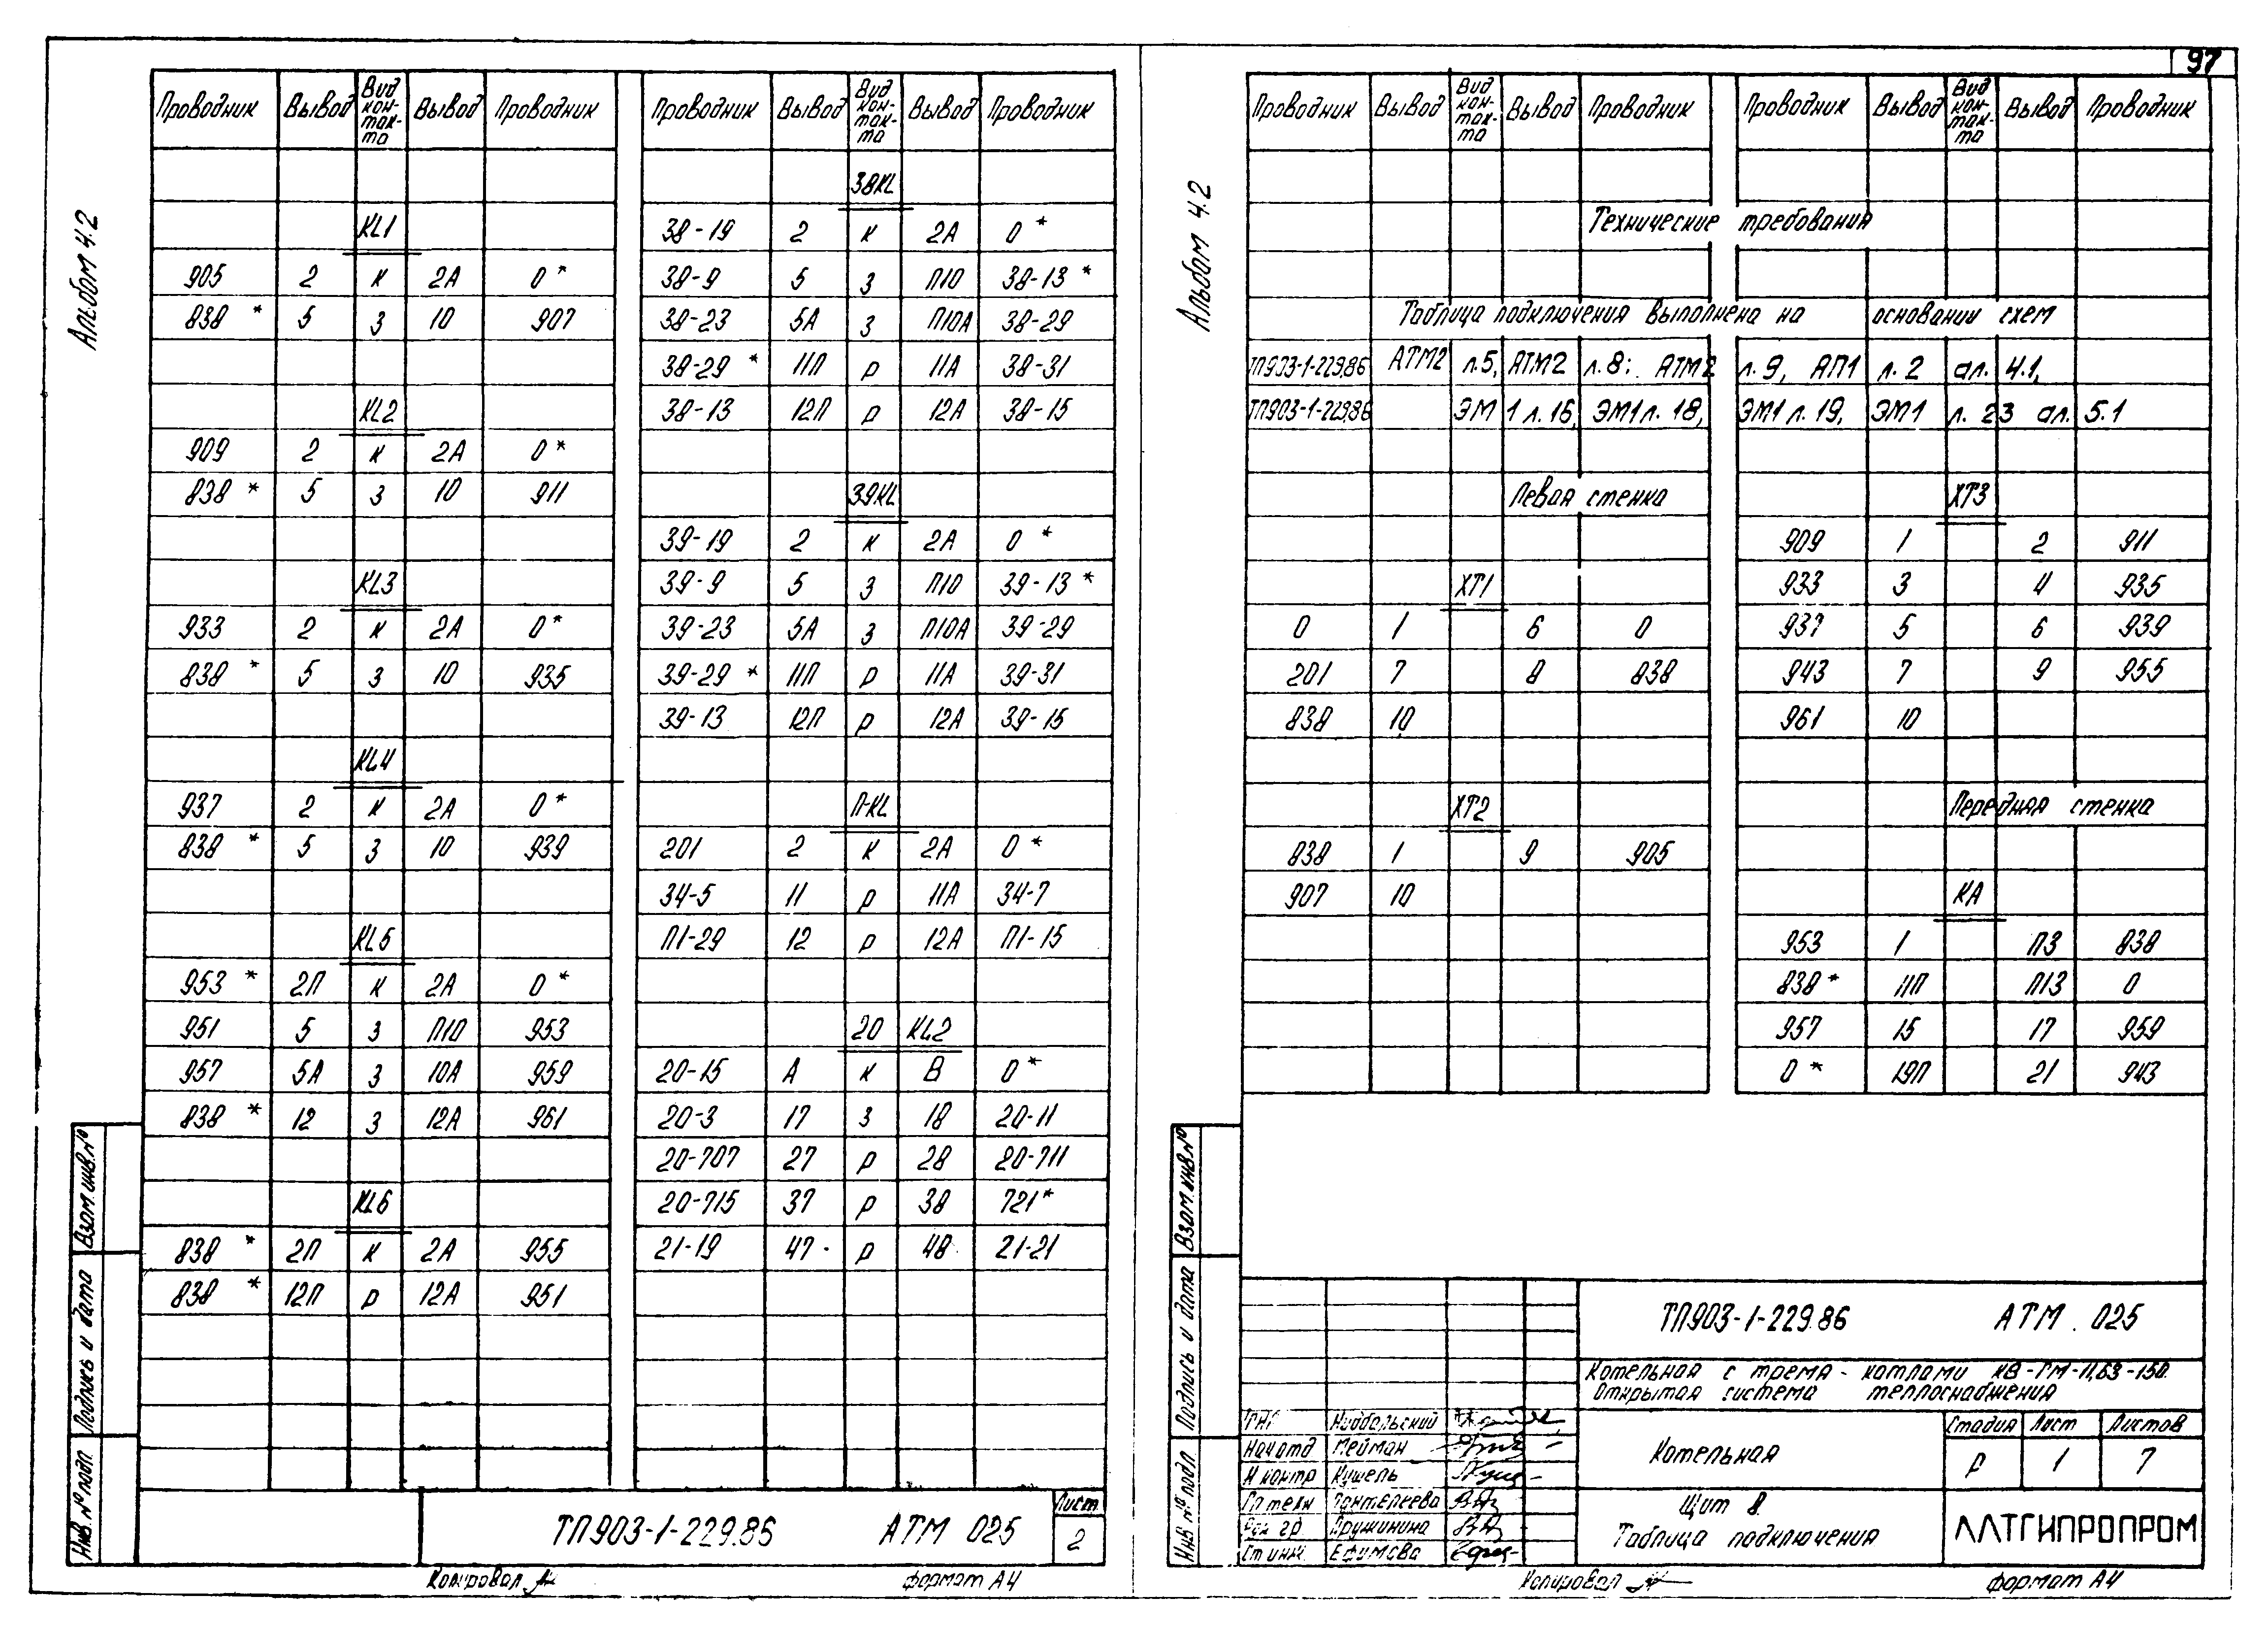 97
Альбом 4.2
Проводник Вывод Вид кон-так-та Вывод Проводник
KL1
905 2 к 2А 0*
838 * 5 з 10 907
KL2
909 2 к 2А 0*
838 * 5 з 10 911
KL3
933 2 к 2А 0*
838 * 5 з 10 935
KL4
937 2 к 2А 0*
838 * 5 з 10 939
KL5
953 * 2П к 2А 0*
951 5 з П10 953
957 5А з 10А 959
838 * 12 з 12А 961
KL6
838 * 2П к 2А 955
838 * 12П р 12А 951
Проводник Вывод Вид кон-так-та Вывод Проводник
38KL
38-19 2 к 2А 0*
38-9 5 з П10 38-13 *
38-23 5А з П10А 38-29
38-29 * 11П р 11А 38-31
38-13 12П р 12А 38-15
39KL
39-19 2 к 2А 0 *
39-9 5 з П10 39-13 *
39-23 5А з П10А 39-29
39-29 * 11П р 11А 39-31
39-13 12П р 12А 39-15
П-KL
201 2 к 2А 0*
34-5 11 р 11А 34-7
П1-29 12 р 12А П1-15
20 KL2
20-15 А к В 0*
20-3 17 з 18 20-11
20-707 27 р 28 20-711
20-715 37 р 38 721*
21-19 47 р 48 21-21
Взам.инв.№
Подпись и дата
Инв.№ подл
ТП903-1-229.86 АТМ 025
Лист
2
Копировал
формат А4
Альбом 4.2
Проводник Вывод Вид кон-так-та Вывод Проводник Проводник Вывод Вид кон-так-та Вывод Проводник
Технические требования
Таблица подключения выполнена на основании схем
ТП903-1-229.86 АТМ2 л.5, АТМ2 л.8; АТМ2 л.9, АП1 л.2 ал. 4.1,
ТП903-1-229.86 ЭМ1 л.16, ЭМ1 л.18, ЭМ1 л.19, ЭМ1 л.23 ал. 5.1
Левая стенка
XT1
0 1 6 0
201 7 8 838
838 10
XT2
838 1 9 905
907 10
XT3
909 1 2 911
933 3 4 935
937 5 6 939
943 7 9 955
961 10
Передняя стенка
КА
953 1 П3 838
838 * 11П П13 0
957 15 17 959
0 * 19П 21 943
Взам.инв.№
Подпись и дата
Инв.№ подл
ТП903-1-229.86 АТМ. 025
Котельная с тремя котлами КВ-ГМ-11,63-150.
Открытая система теплоснабжения
ГИП Нидбальский
Нач отд Мейман
Н контр Кушель
Гл техн Пантелеева
Рук гр. Пружинина
Ст инж. Ефимова
Котельная
Стадия Лист Листов
Р 1 7
Щит 8.
Таблица подключения
ЛАТГИПРОПРОМ
Копировал
формат А4